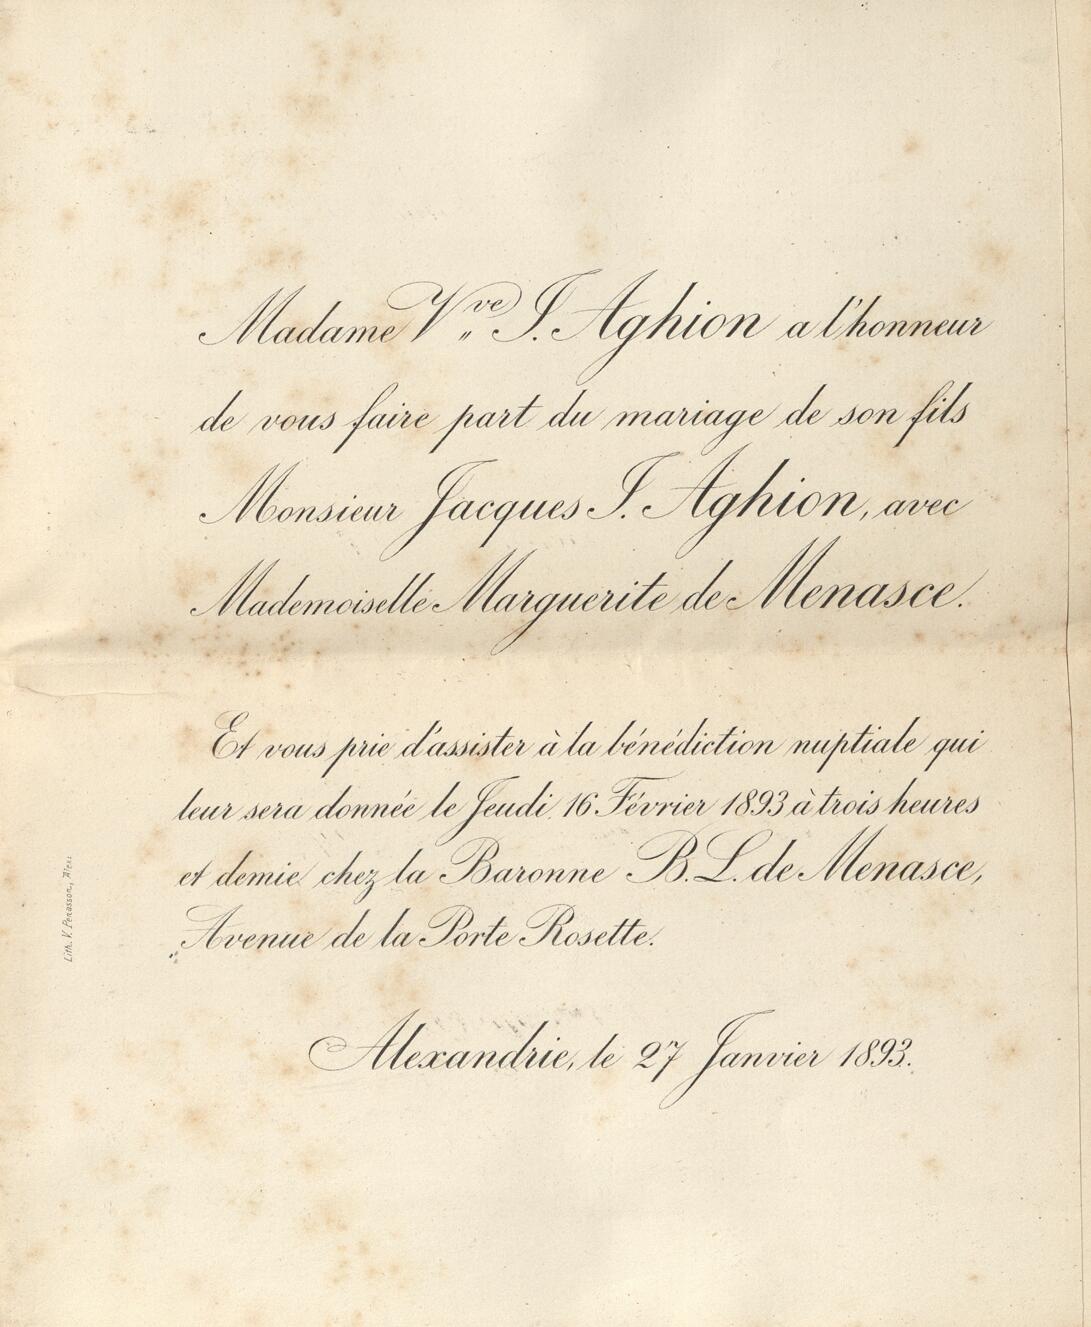 Madame Vve I. Aghion a l'honneur
de vous faire part du mariage de son fils
Monsieur Jacques I. Aghion, avec
Mademoiselle Marguerite de Menasce.
Et vous prie d'assister à la bénédiction nuptiale qui
leur sera donnée le Jeudi 16 Février 1893 à trois heures
et demie chez la Baronne B. L. de Menasce,
Avenue de la Porte Rosette.
Alexandrie, le 27 Janvier 1893.
Lith. V. Penasson, Alex.